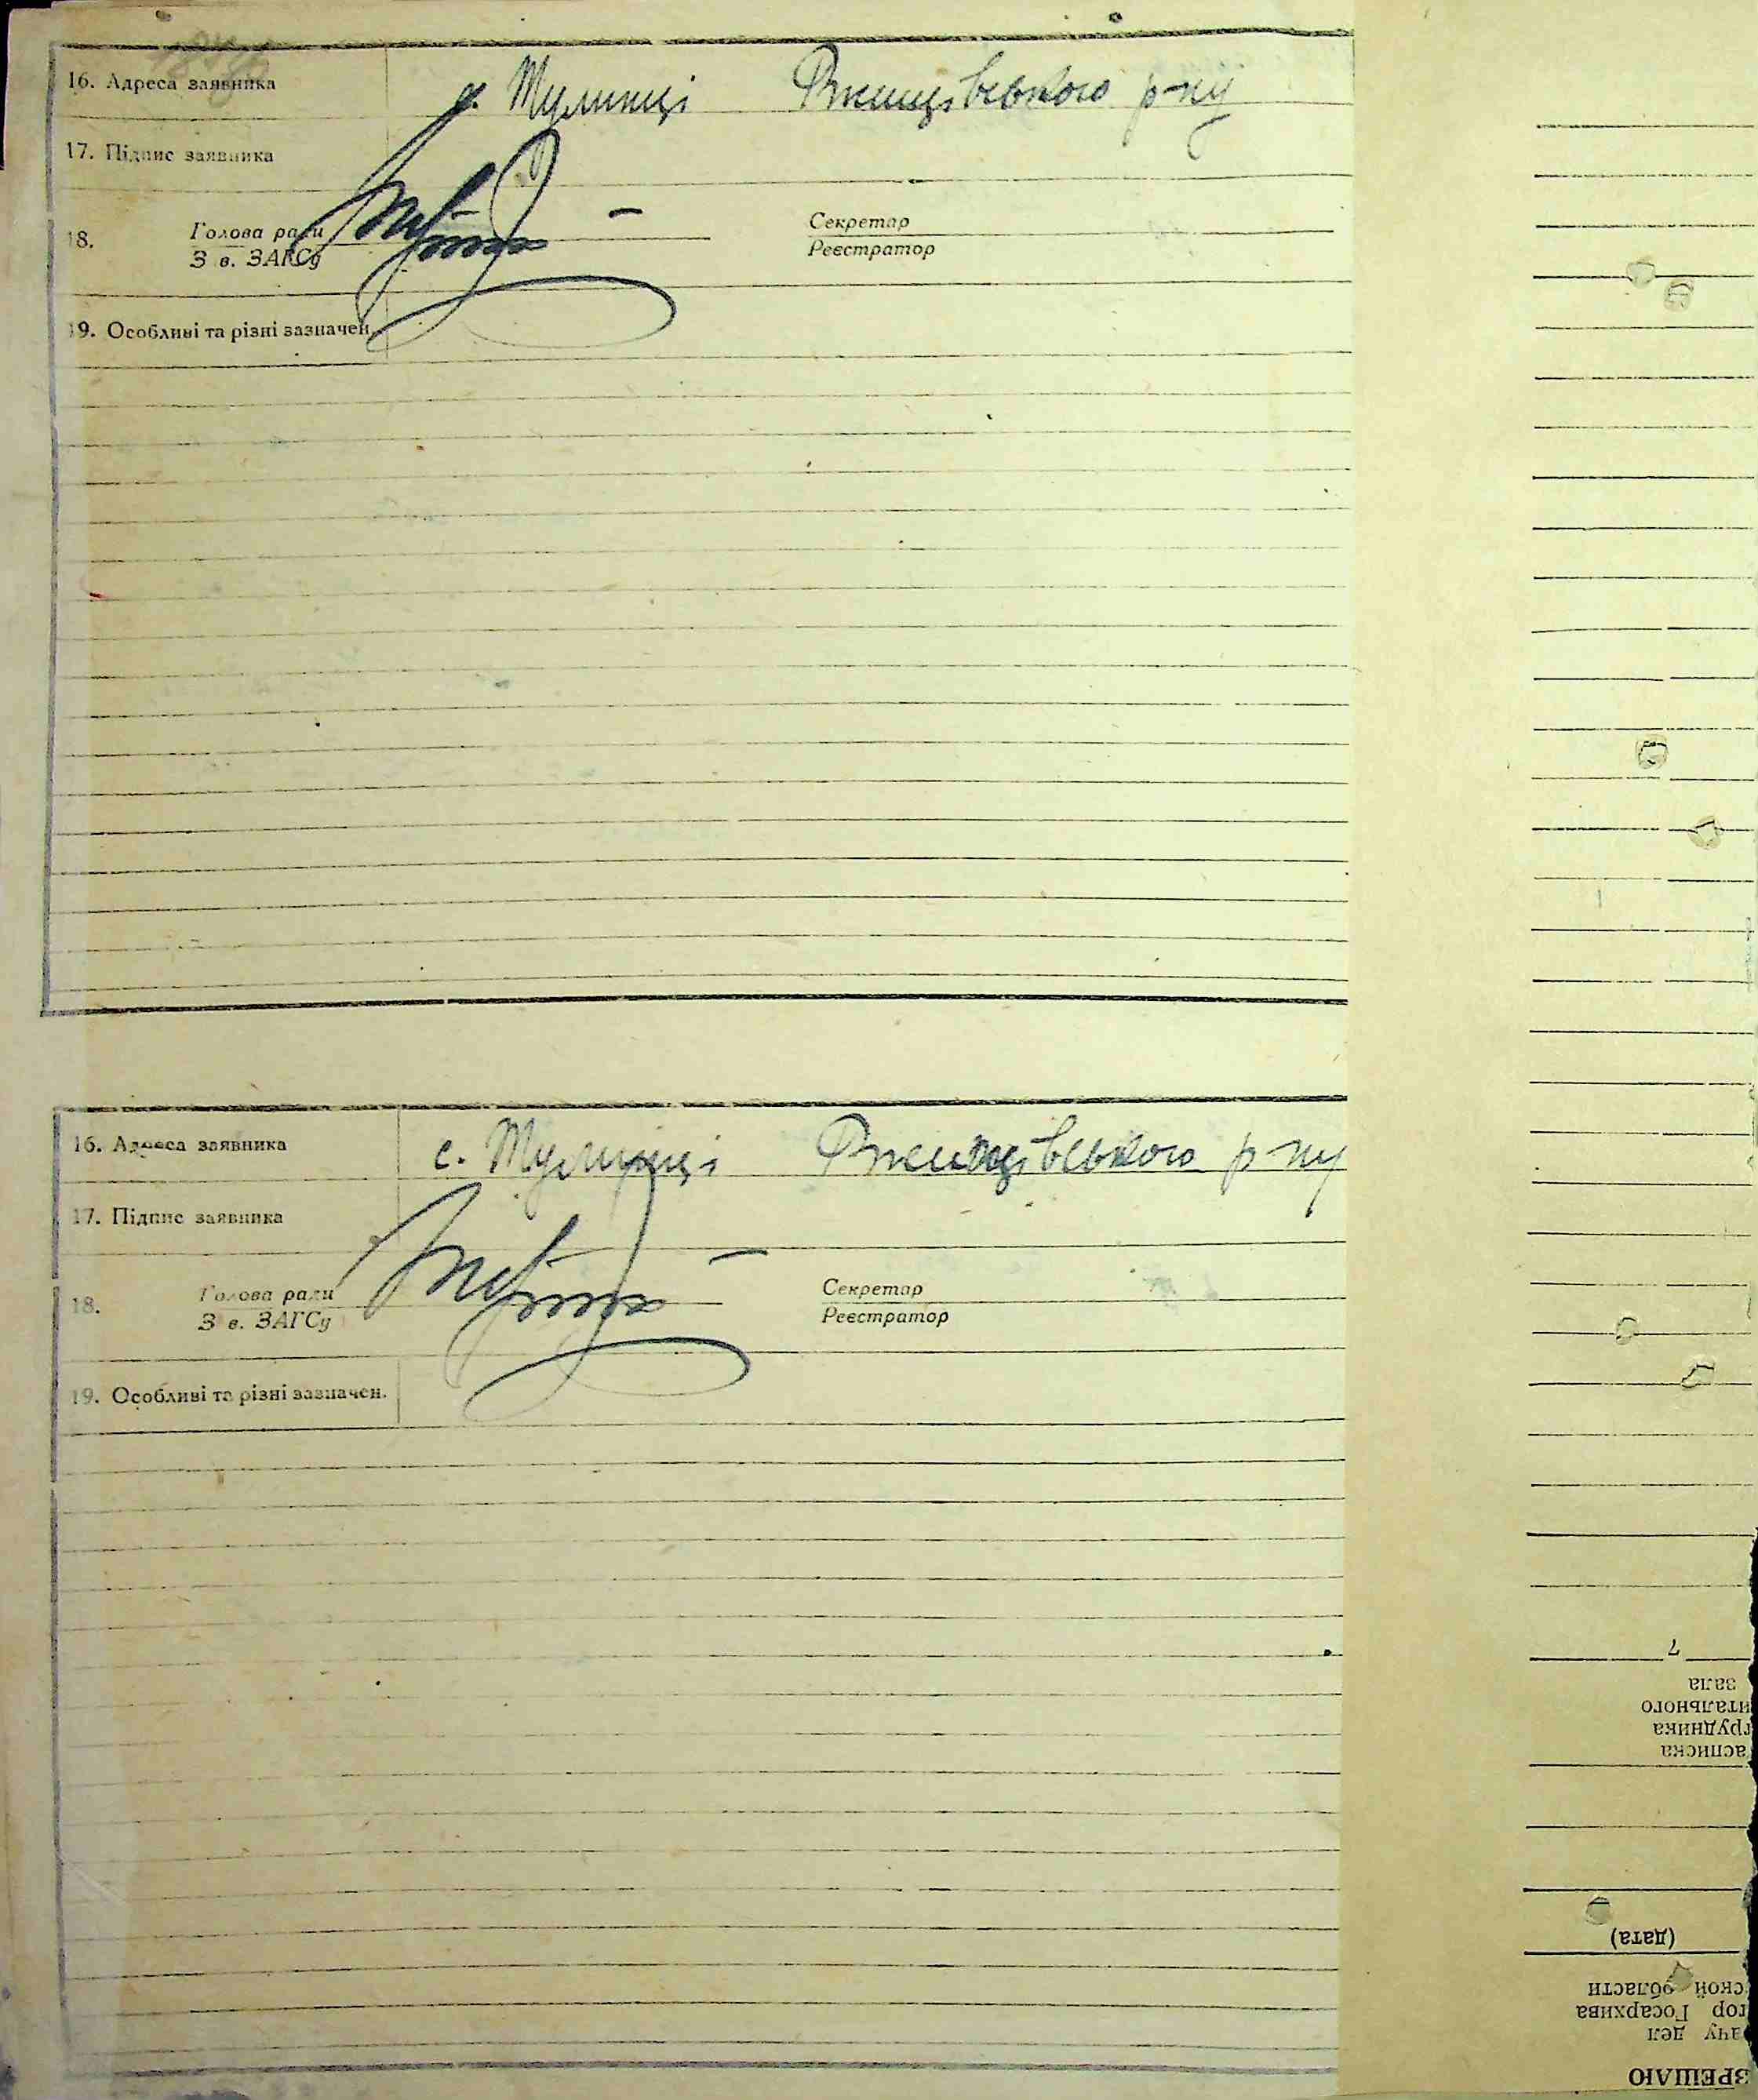 16. Адреса заявника с. Тулинці Ржищівського р-ну
17. Підпис заявника
18. Голова ради Секретар
З в. ЗАГСу Реєстратор
19. Особливі та різні зазначен.
16. Адреса заявника с. Тулинці Ржищівського р-ну
17. Підпис заявника
18. Голова ради Секретар
З в. ЗАГСу Реєстратор
19. Особливі та різні зазначен.
ЗРЕШАЮ
ачу дел
тор Госархива
ской области
(дата)
асписка
трудника
итального
зала
7